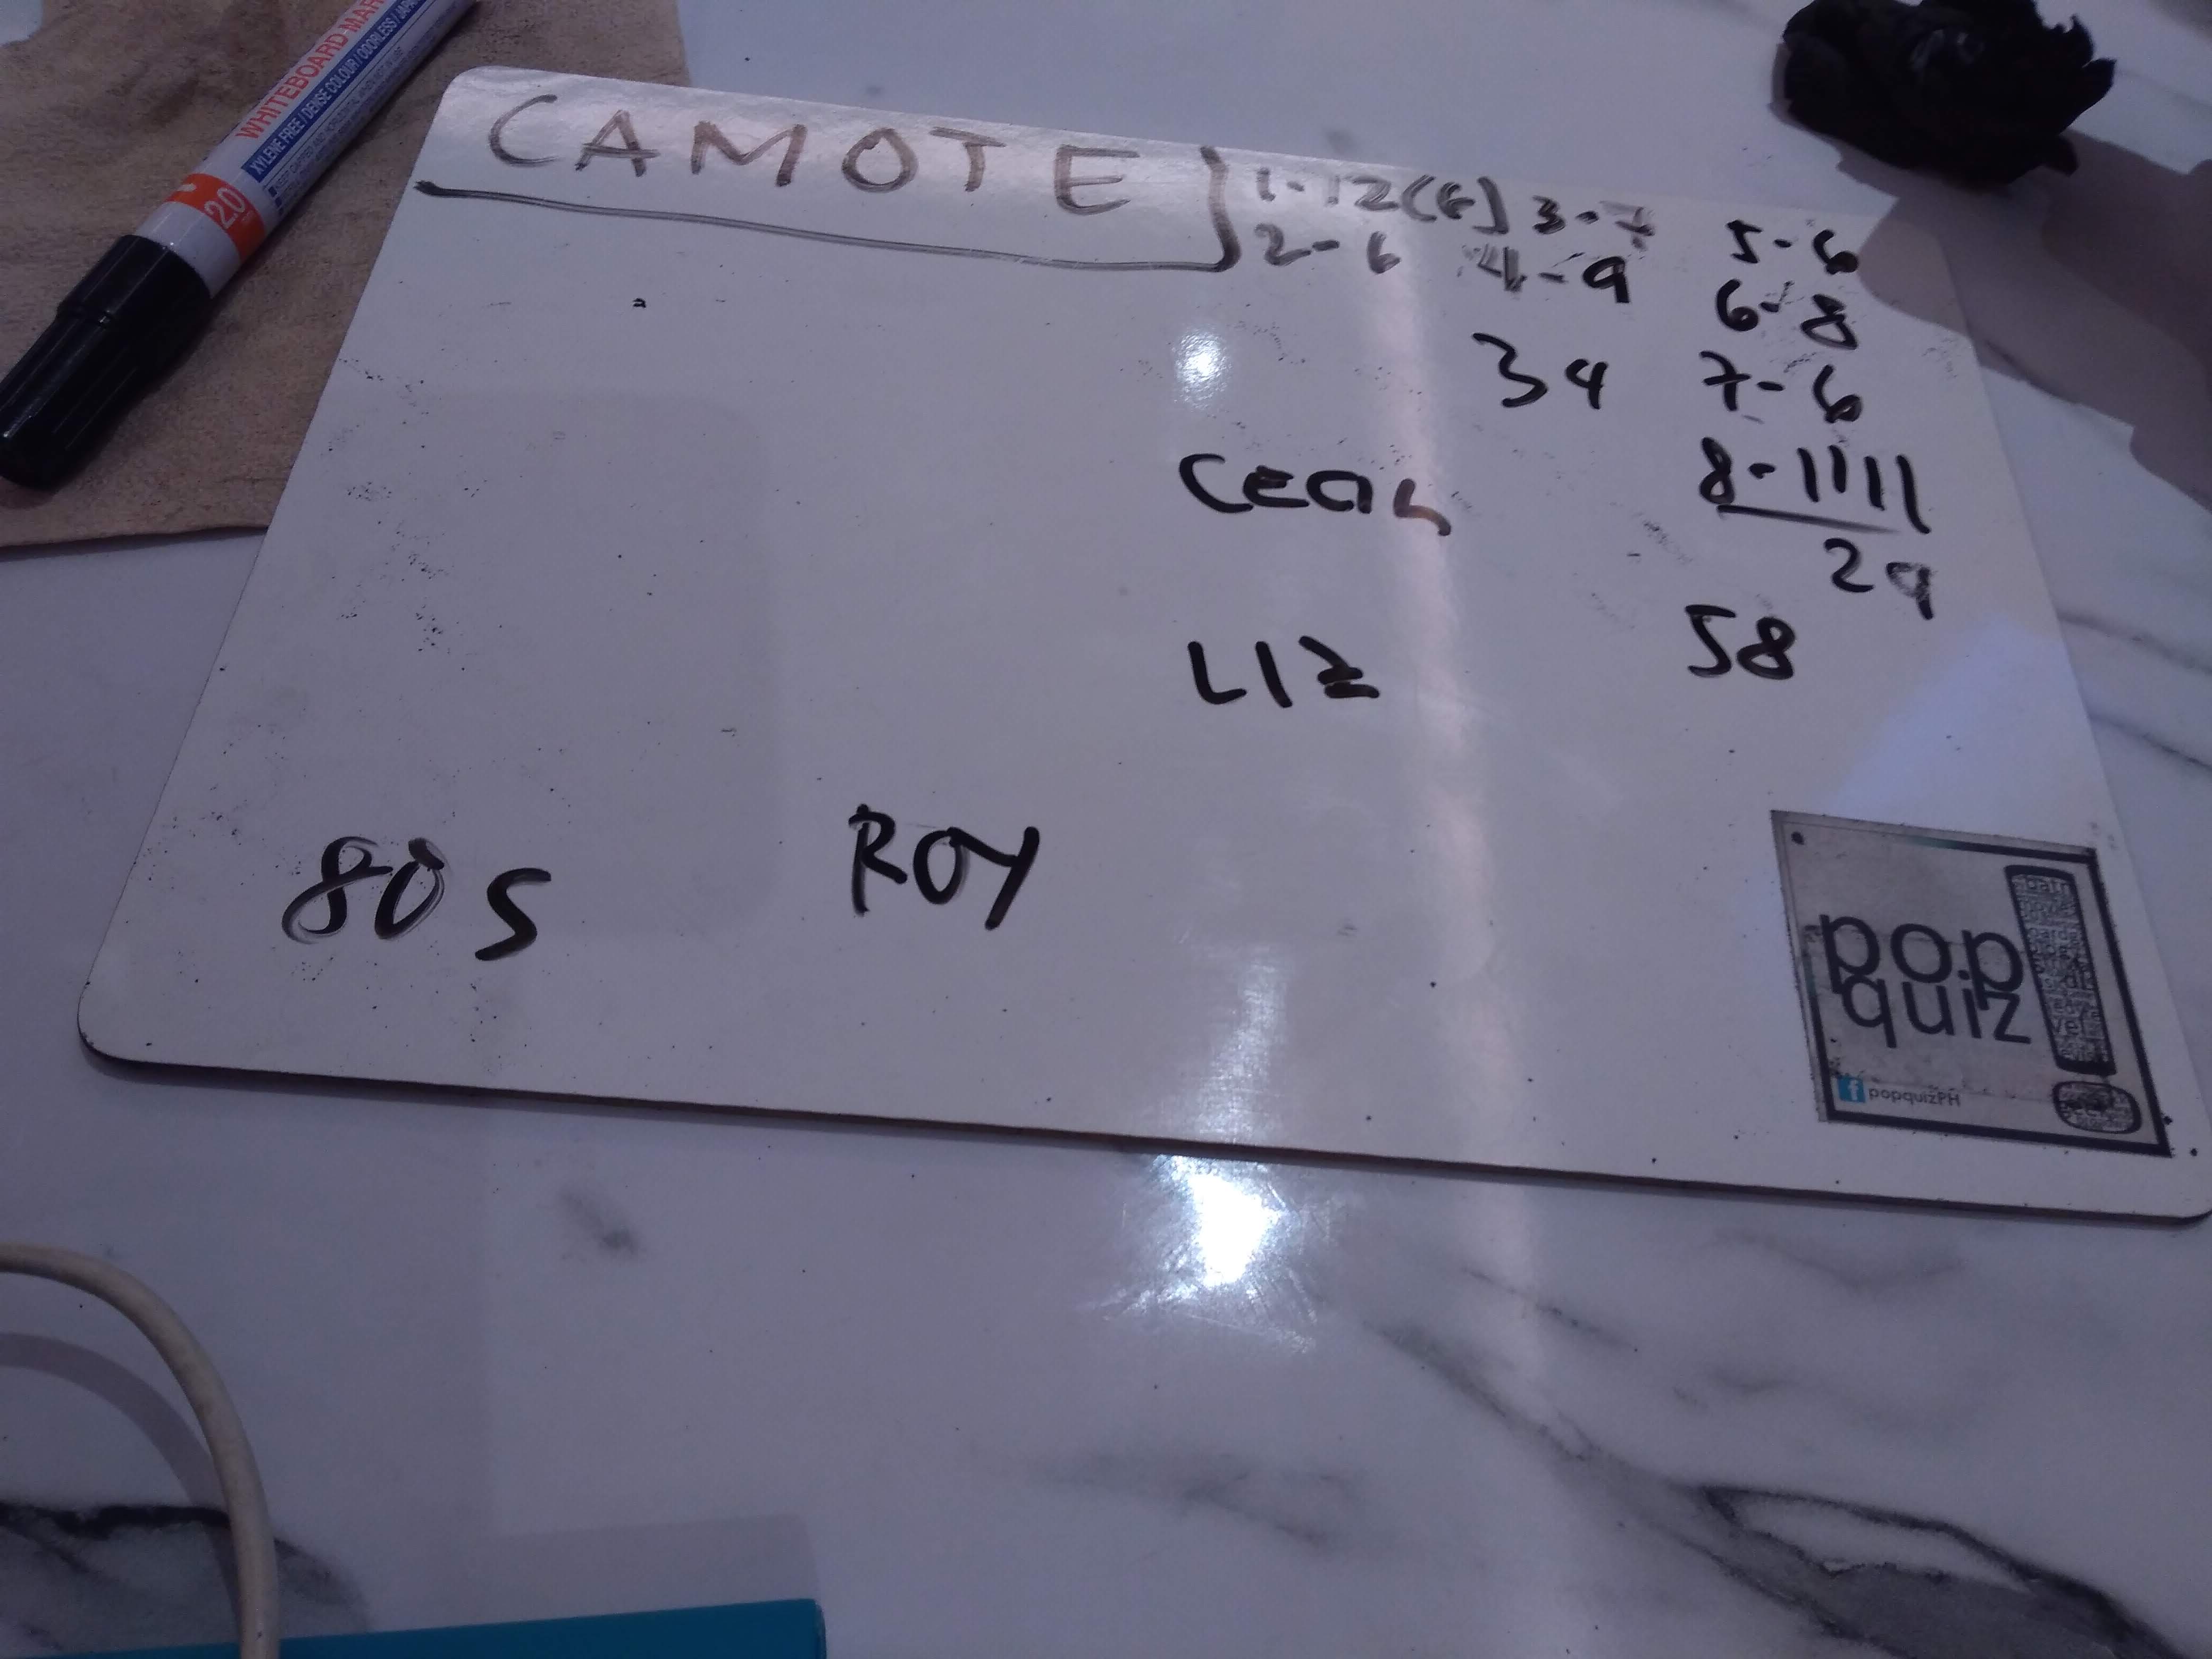 WHITEBOARD MAR
XYLENE FREE / DENSE COLOUR / ODORLESS / JAPA
2.0
CAMOTE
1-12(6) 3-7 5-6
2-6 4-9 6-8
34 7-6
8-1111
29
LIZ 58
80s ROY
pop
quiz
f popquizPH